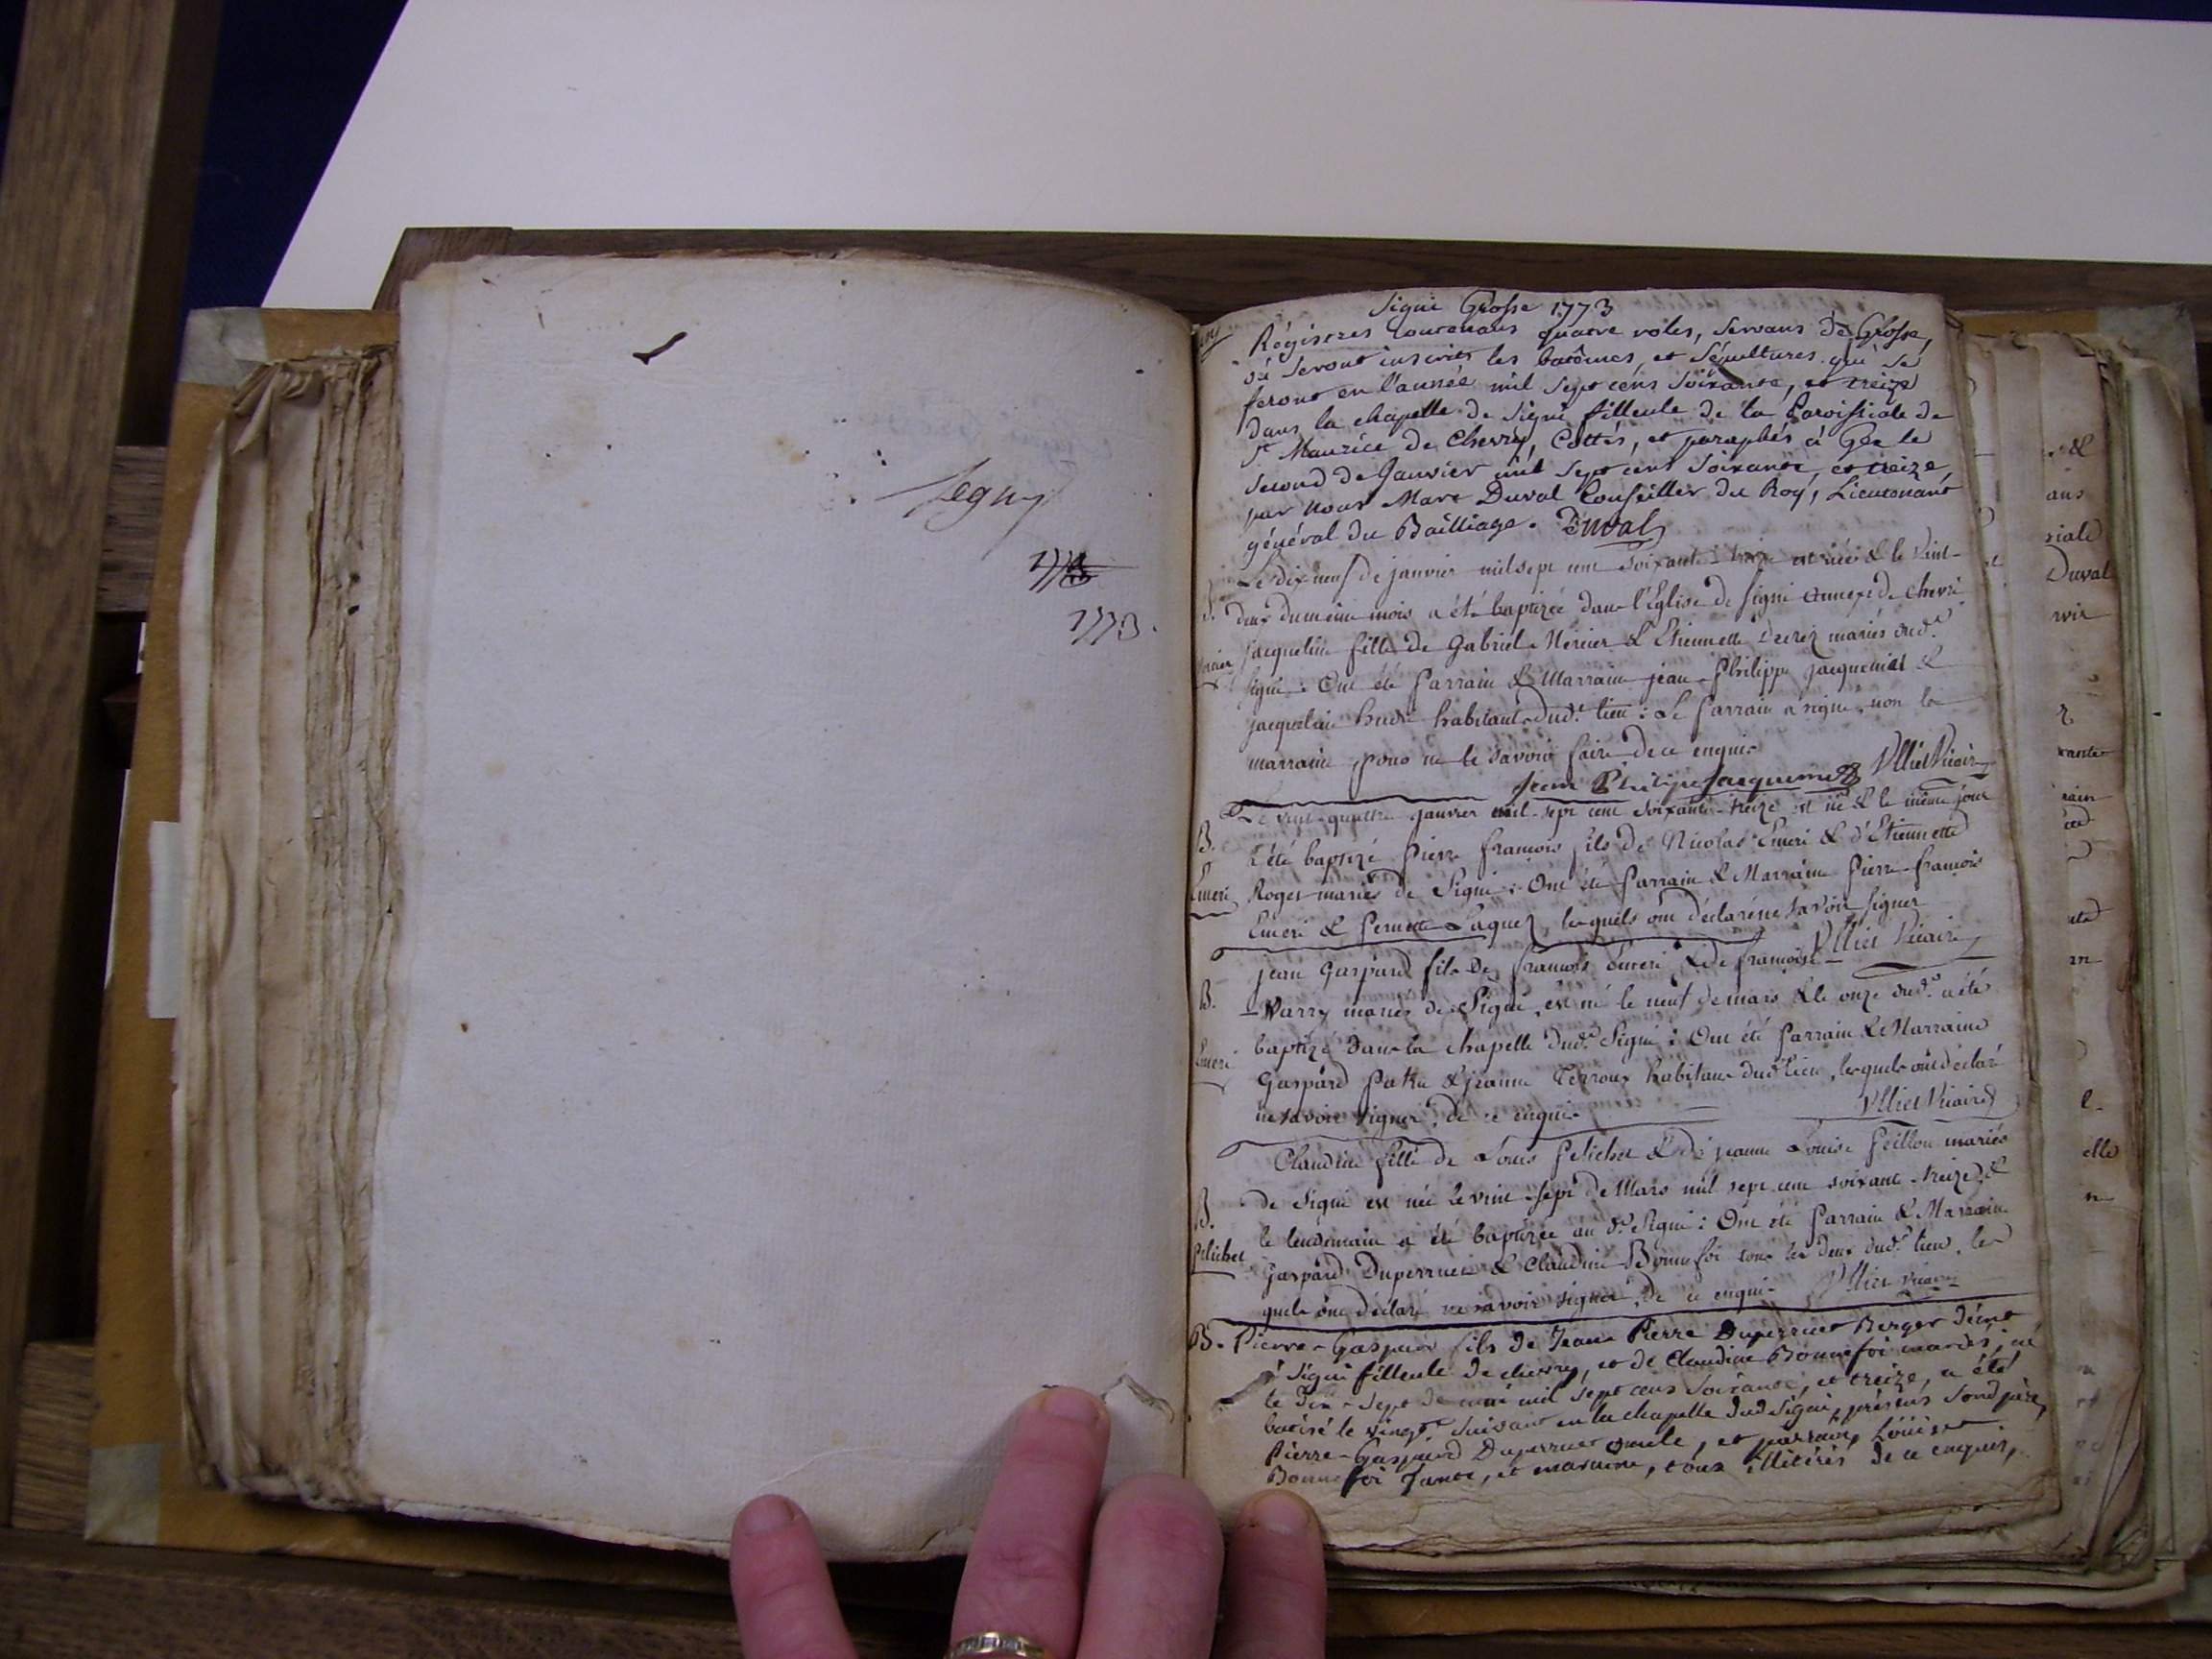 Segny
1773.
Signi Grosse 1773
Régistres contenans quatre roles, servans de Grosse,
où seront inscrits les batêmes, et Sépultures qui se
feront en l'année mil sept cens soixante, et treize
dans la chapelle de Signi filleule de la Paroissiale de
St Maurice de Chevry, Cottés, et paraphés à Gex le
second de Janvier mil sept cens soixante, et treize,
par nous Marc Duval Conseiller du Roy, Lieutenant
général du Bailliage. Duval
Le dix neuf de janvier mil sept cent soixante-treize est née & le vint-
deux du même mois a été baptizée dans l'Eglise de Signi annexe de Chevri
jacqueline fille de Gabriel Mercier & Etiennette mariés dud.
Signi : Ont été Parrain & Marraine jean-Philippe jacquemet &
jacqueline habitants dud. lieu : Le Parrain a signé, non la
marraine pour ne le savoir faire de ce enquis
Jean Philipe Jacquemet Vicaire
Le vint-quatre janvier mil-sept cent soixante-treize est né & le même jour
B.
a été baptizé Pierre françois fils de Nicolas Emeri & d'Etiennette
Emeri
Roget mariés de Signi : Ont été Parrain & Marraine Pierre-françois
Emeri & Pernette, lesquels ont déclaré ne savoir signer
Vicaire
jean Gaspard fils de françois Emeri & de françoise
B.
Warry mariés de Signi, est né le neuf de mars & le onze dud. a été
baptizé dans la chapelle dud. Signi : Ont été Parrain & Marraine
Emeri
Gaspard & jeanne habitans dud. lieu, lesquels ont déclaré
ne savoir signer, de ce enquis
Vicaire
Claudine fille de Louis Pelichet & de jeanne Louise Peillon mariés
B.
de Signi est née le vint-sept de Mars mil sept cent soixante-treize &
le lendemain a été baptizée au d. Signi : Ont été Parrain & Marraine
Pelichet
Gaspard Duperruet & Claudine Bonnefoi tous les deux dud. lieu, les
quels ont déclaré ne savoir signer, de ce enquis Vicaire
B. Pierre-Gaspard fils de Jean Pierre Duperruet Berger
à Signi filleule de chevry, et de Claudine Bonnefoi mariés, né
le Dix-sept de mai mil sept cens soixante, et treize, a été
batisé le vingt suivant en la chapelle dud Signi, présens sond père,
Pierre-Gaspard Duperruet oncle, et parrain, Louise
Bonnefoi Tante, et maraine, tous illitérés de ce enquis,
Duval